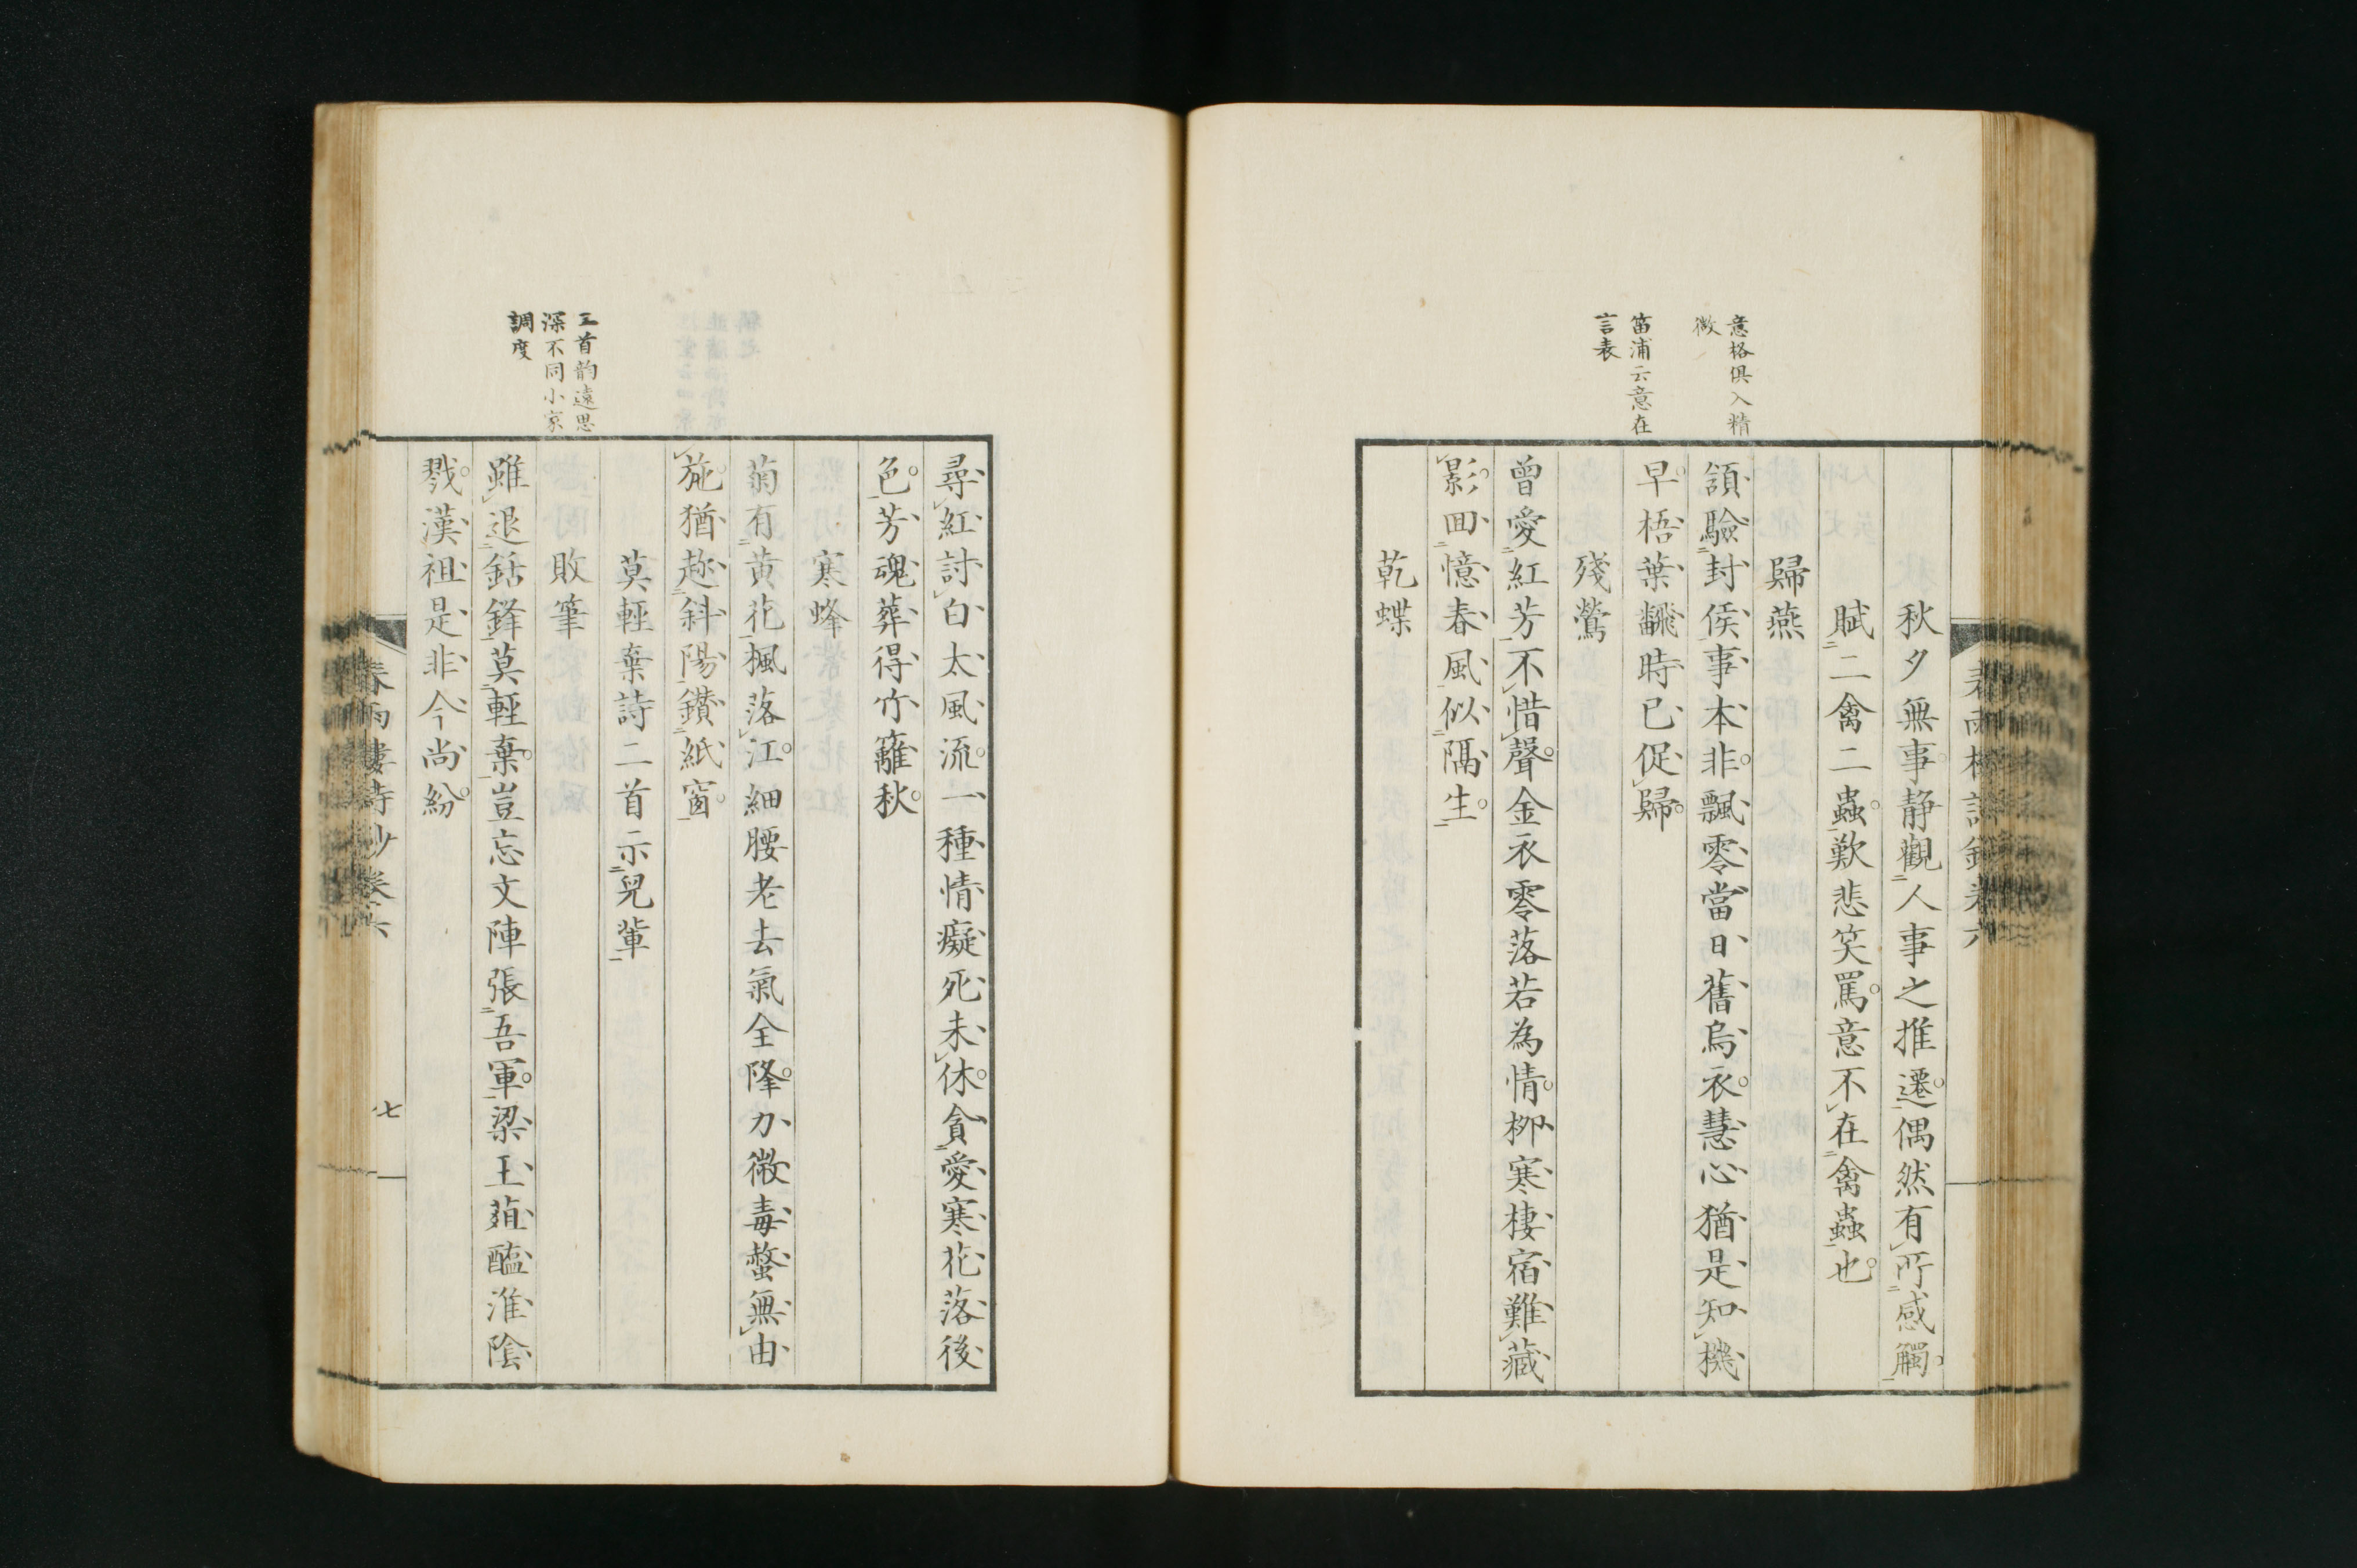 意格俱入精
微
笛浦云意在
言表
秋夕無事静觀人事之推遷偶然有所感觸
賦二禽二蟲歎悲笑罵意不在禽蟲也
歸燕
頷驗封侯事本非飄零當日舊烏衣慧心猶是知機
早梧葉飜時已促歸
殘鶯
曾愛紅芳不惜聲金衣零落若為情柳寒棲宿難藏
影回憶春風似隔生
乾蝶
三首韵遠思
深不同小家
調度
尋紅討白太風流一種情癡死未休貪愛寒花落後
色芳魂葬得竹籬秋
寒蜂
菊有黄花楓落江細腰老去氣全降力微毒螫無由
施猶趂斜陽鑽紙窗
莫輕棄詩二首示兒輩
敗筆
雖退銛鋒莫輕棄豈忘文陣張吾軍梁王葅醢淮陰
戮漢祖是非今尚紛
春雨樓詩鈔卷六
七